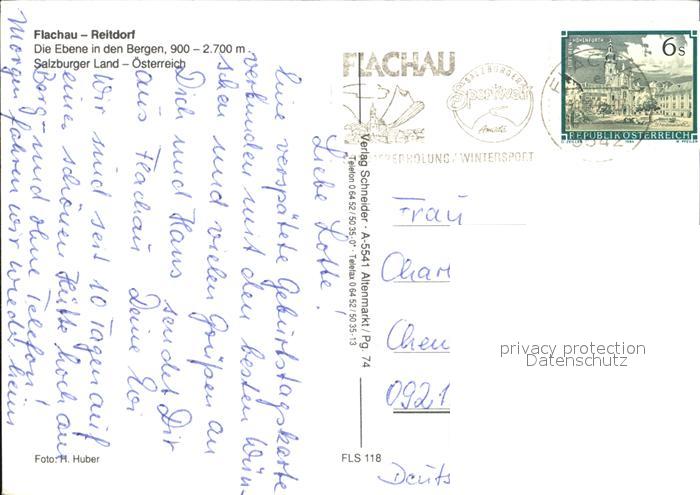 Flachau – Reitdorf
Die Ebene in den Bergen, 900 – 2.700 m
Salzburger Land – Österreich
Liebe Lotte!
Eine verspätete Geburtstagskarte
verbunden mit den besten Wün-
schen und vielen Grüßen an
Dich und Hans sendet Dir
aus Flachau Deine Evi
Wir sind seit 10 Tagen auf
einer schönen Hütte hoch am
Berg und ohne Telefon!
Morgen fahren wir wieder heim
Foto: H. Huber
Verlag Schneider · A-5541 Altenmarkt / Pg. 74
Telefon 0 64 52 / 50 35-0* · Telefax 0 64 52 / 50 35-13
FLS 118
FLACHAU
SALZBURGER
Sportwelt
Amadé
ERHOLUNG / WINTERSPORT
STIFT REIN-HOHENFURTH
6 S
REPUBLIK ÖSTERREICH
Frau
Char
Chem
0921
Deuts
privacy protection
Datenschutz